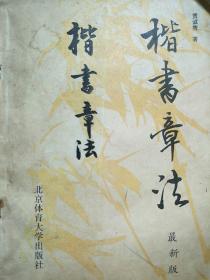 楷書章法
著
最新版
楷書章法
北京体育大学出版社